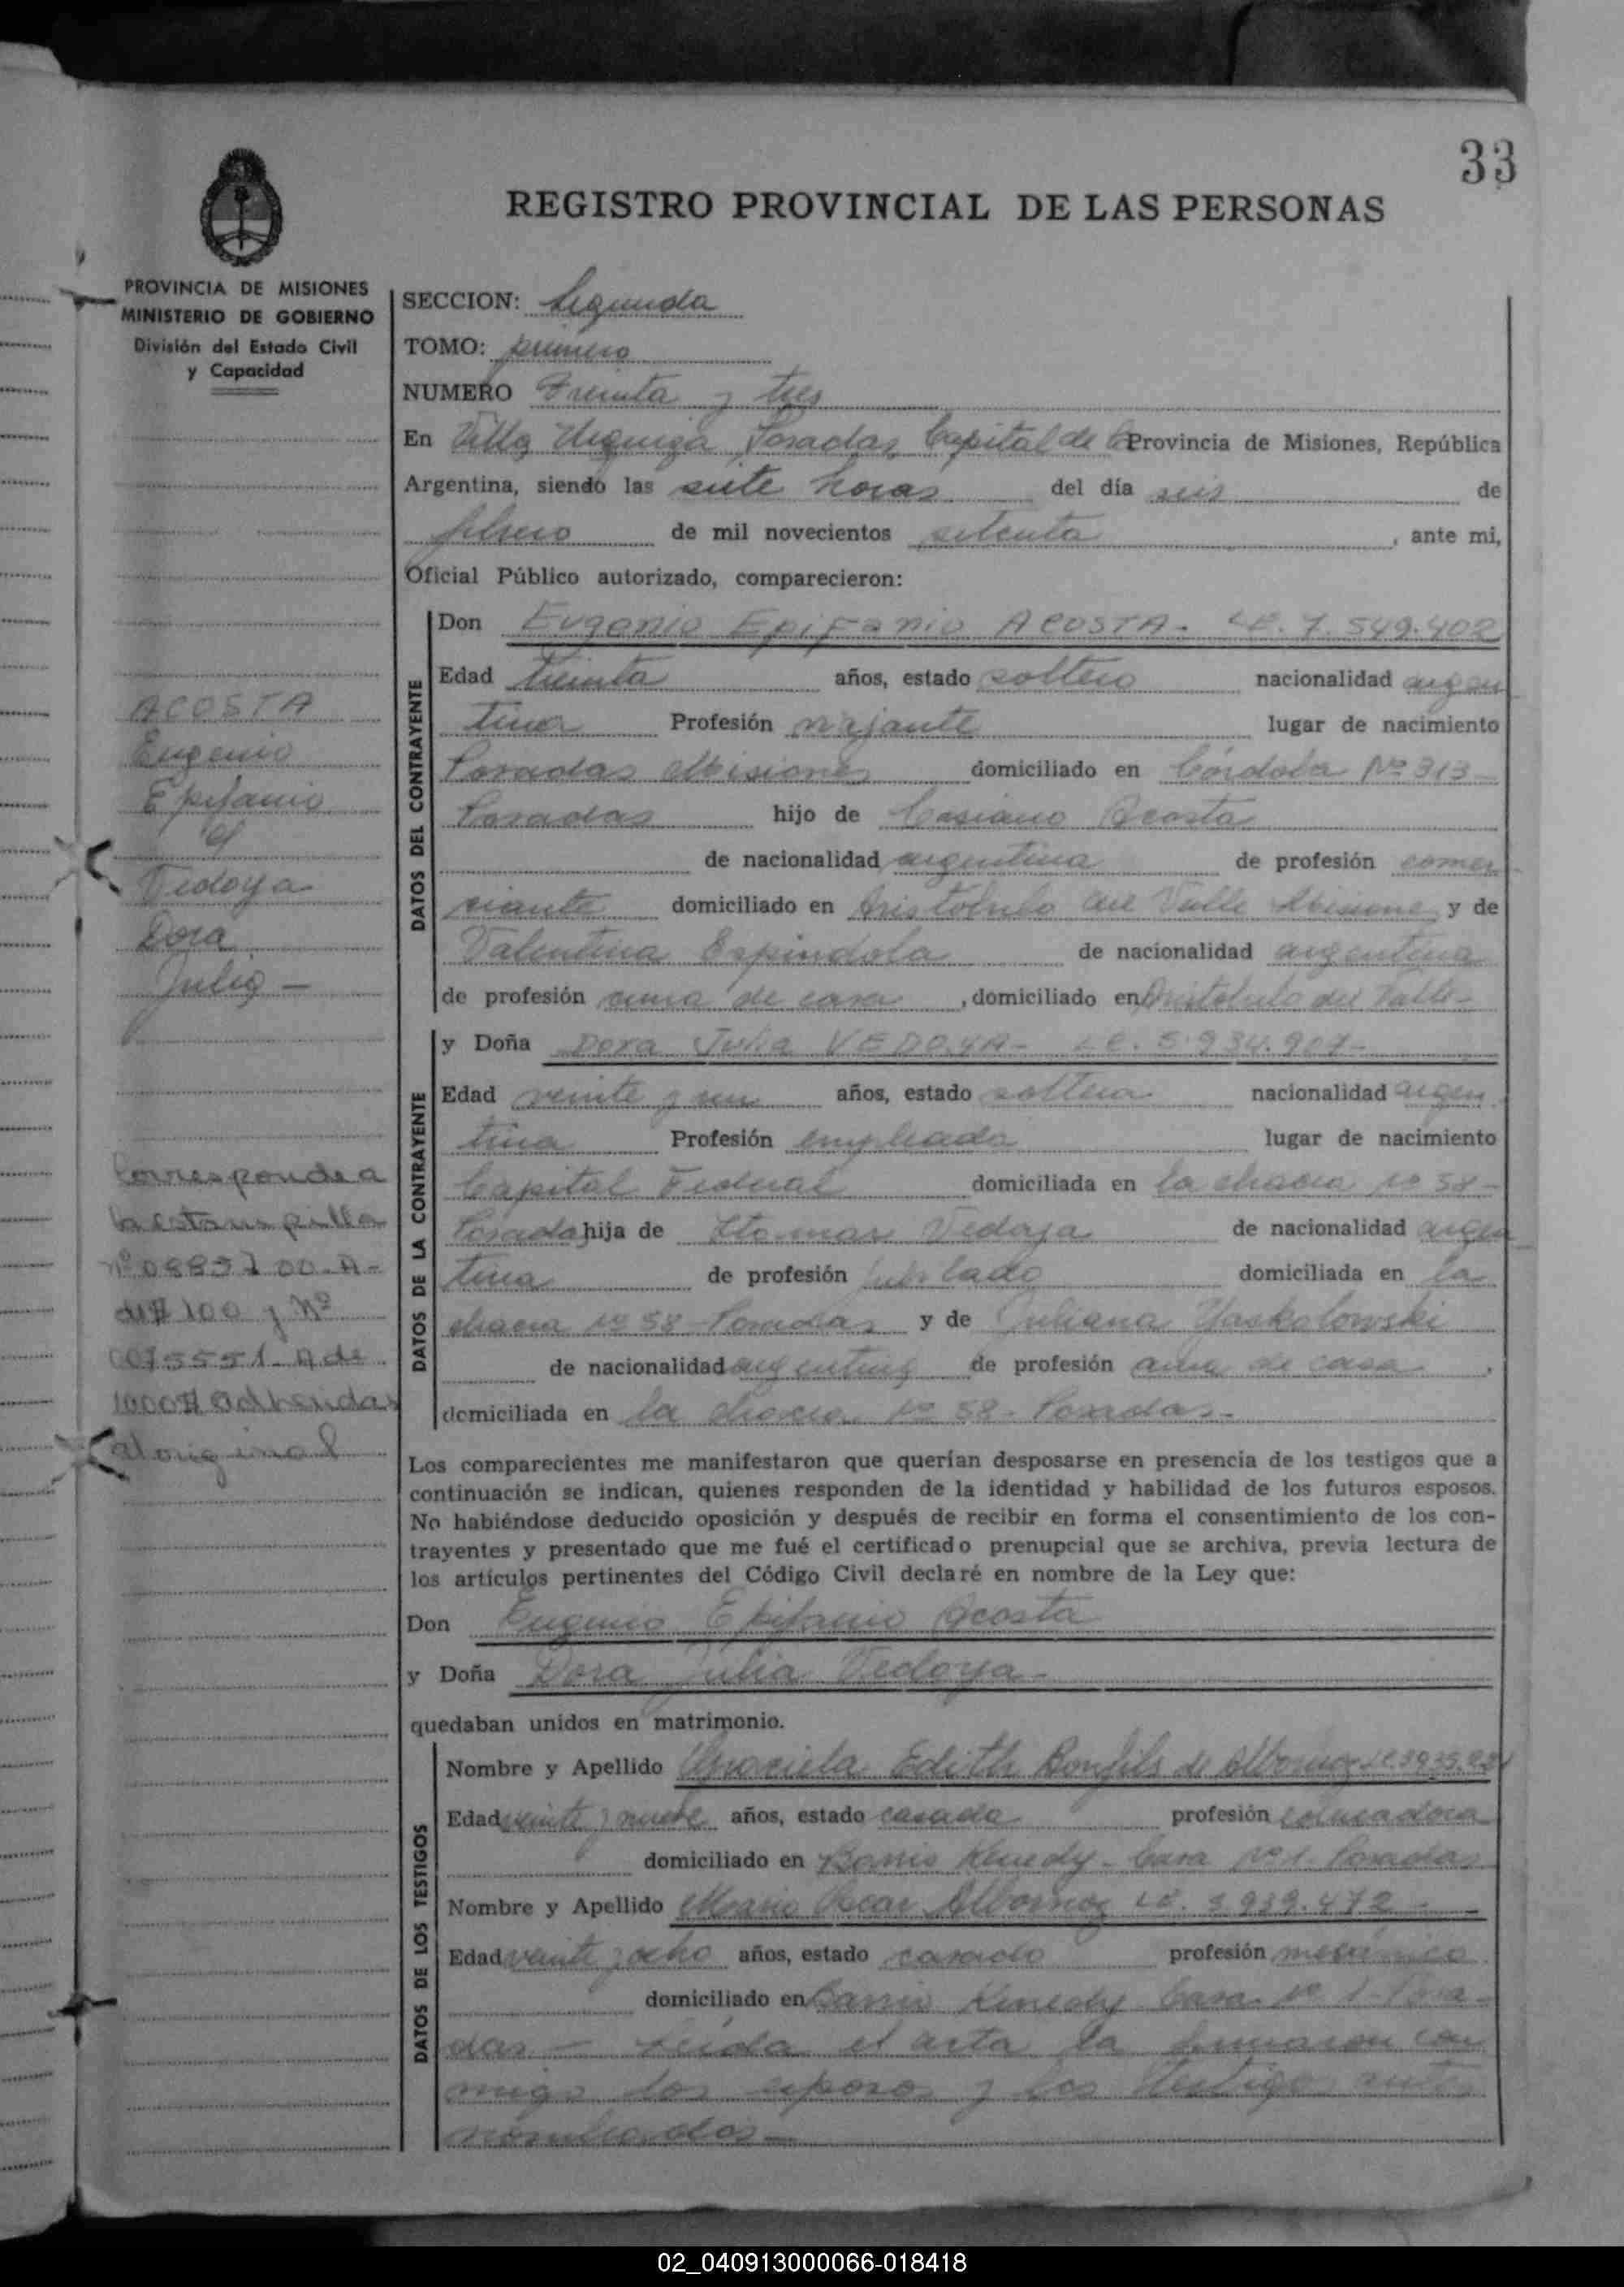 33
REGISTRO PROVINCIAL DE LAS PERSONAS
PROVINCIA DE MISIONES
MINISTERIO DE GOBIERNO
División del Estado Civil
y Capacidad
SECCION: Segunda
TOMO: primero
NUMERO Treinta y tres
En Villa Urquiza, Posadas, Capital de la Provincia de Misiones, República
Argentina, siendo las siete horas del día seis de
febrero de mil novecientos setenta, ante mi,
Oficial Público autorizado, comparecieron:
ACOSTA
Eugenio
Epifanio
c/
Vedoya
Dora
Julia -
Corresponde a
la estampilla
Nº 0883700-A-
de $ 100 y Nº
0075551-A de
1000$ adheridas
al original
DATOS DEL CONTRAYENTE
Don Eugenio Epifanio ACOSTA - L.E. 7.549.402
Edad treinta años, estado soltero nacionalidad argen
tina Profesión viajante lugar de nacimiento
Posadas Misiones domiciliado en Córdoba Nº 313 -
Posadas hijo de Casiano Acosta
de nacionalidad argentina de profesión comer
ciante domiciliado en Aristóbulo del Valle Misiones y de
Valentina Espindola de nacionalidad argentina
de profesión ama de casa, domiciliado en Aristobulo del Valle -
DATOS DE LA CONTRAYENTE
y Doña Dora Julia VEDOYA - L.C. 5.934.907 -
Edad veinte y un años, estado soltera nacionalidad argen
tina Profesión empleada lugar de nacimiento
Capital Federal domiciliada en la chacra Nº 58 -
Posadas hija de Vedoya de nacionalidad argen
tina de profesión jubilado domiciliada en la
chacra Nº 58 - Posadas y de Juliana Yaskolowski
de nacionalidad argentina de profesión ama de casa,
domiciliada en la chacra Nº 58 - Posadas -
Los comparecientes me manifestaron que querían desposarse en presencia de los testigos que a
continuación se indican, quienes responden de la identidad y habilidad de los futuros esposos.
No habiéndose deducido oposición y después de recibir en forma el consentimiento de los con-
trayentes y presentado que me fué el certificado prenupcial que se archiva, previa lectura de
los artículos pertinentes del Código Civil declaré en nombre de la Ley que:
Don Eugenio Epifanio Acosta
y Doña Dora Julia Vedoya -
quedaban unidos en matrimonio.
DATOS DE LOS TESTIGOS
Nombre y Apellido Graciela Edith Bonfils de Albornoz
Edad veinte y nueve años, estado casada profesión educadora
domiciliado en Barrio Kenedy - Casa Nº 1 Posadas
Nombre y Apellido Mario Oscar Albornoz L.E. 3.939.472 -
Edad veinte y ocho años, estado casado profesión mecánico
domiciliado en Barrio Kenedy Casa Nº 1 - Posa-
das - Leída el acta la firmaron con
migo los esposos y los testigos antes
nombrados -
02_040913000066-018418